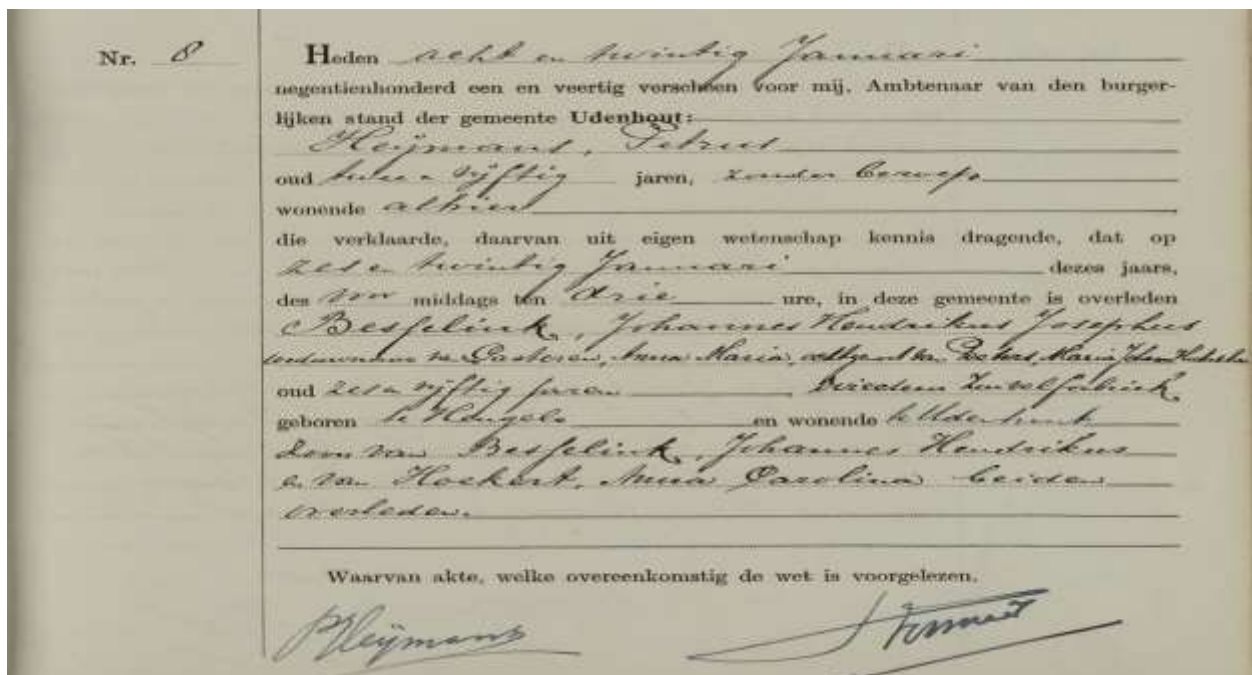 Nr. 8
Heden acht en twintig Januari
negentienhonderd een en veertig verscheen voor mij, Ambtenaar van den burger-
lijken stand der gemeente Udenhout:
Heijmans, Petrus
oud twee en vijftig jaren, zonder beroep
wonende alhier
die verklaarde, daarvan uit eigen wetenschap kennis dragende, dat op
zes en twintig Januari dezes jaars,
des voor middags ten drie ure, in deze gemeente is overleden
Besselink, Johannes Hendrikus Josephus
weduwnaar van Pastoren, Anna Maria, echtgenoot van Peters, Maria
oud zes en vijftig jaren Directeur Zuivelfabriek
geboren te Hengelo en wonende te Udenhout
Zoon van Besselink, Johannes Hendrikus
en van Hockert, Anna Carolina beiden
overleden.
Waarvan akte, welke overeenkomstig de wet is voorgelezen.
PHeijmans